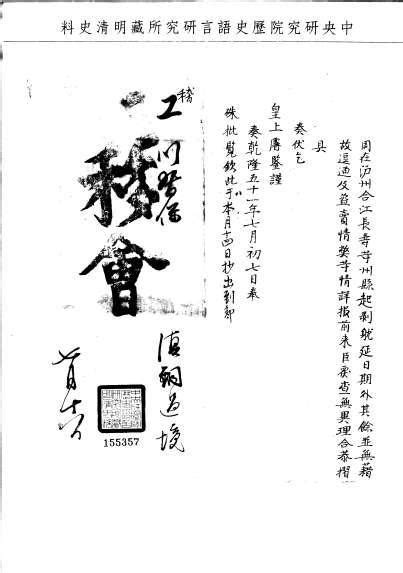 中央研究院歷史語言研究所藏明清史料
因在泸州合江長壽等州縣起剥躭延日期外其餘並無藉
故逗遛及盜賣情獘等情詳報前來臣覆查無異理合恭摺
具
奏伏乞
皇上睿鑒謹
奏乾隆五十一年七月初七日奉
硃批覽欽此于本月十四日抄出到部
稽
工
移會
滇銅過境
155357